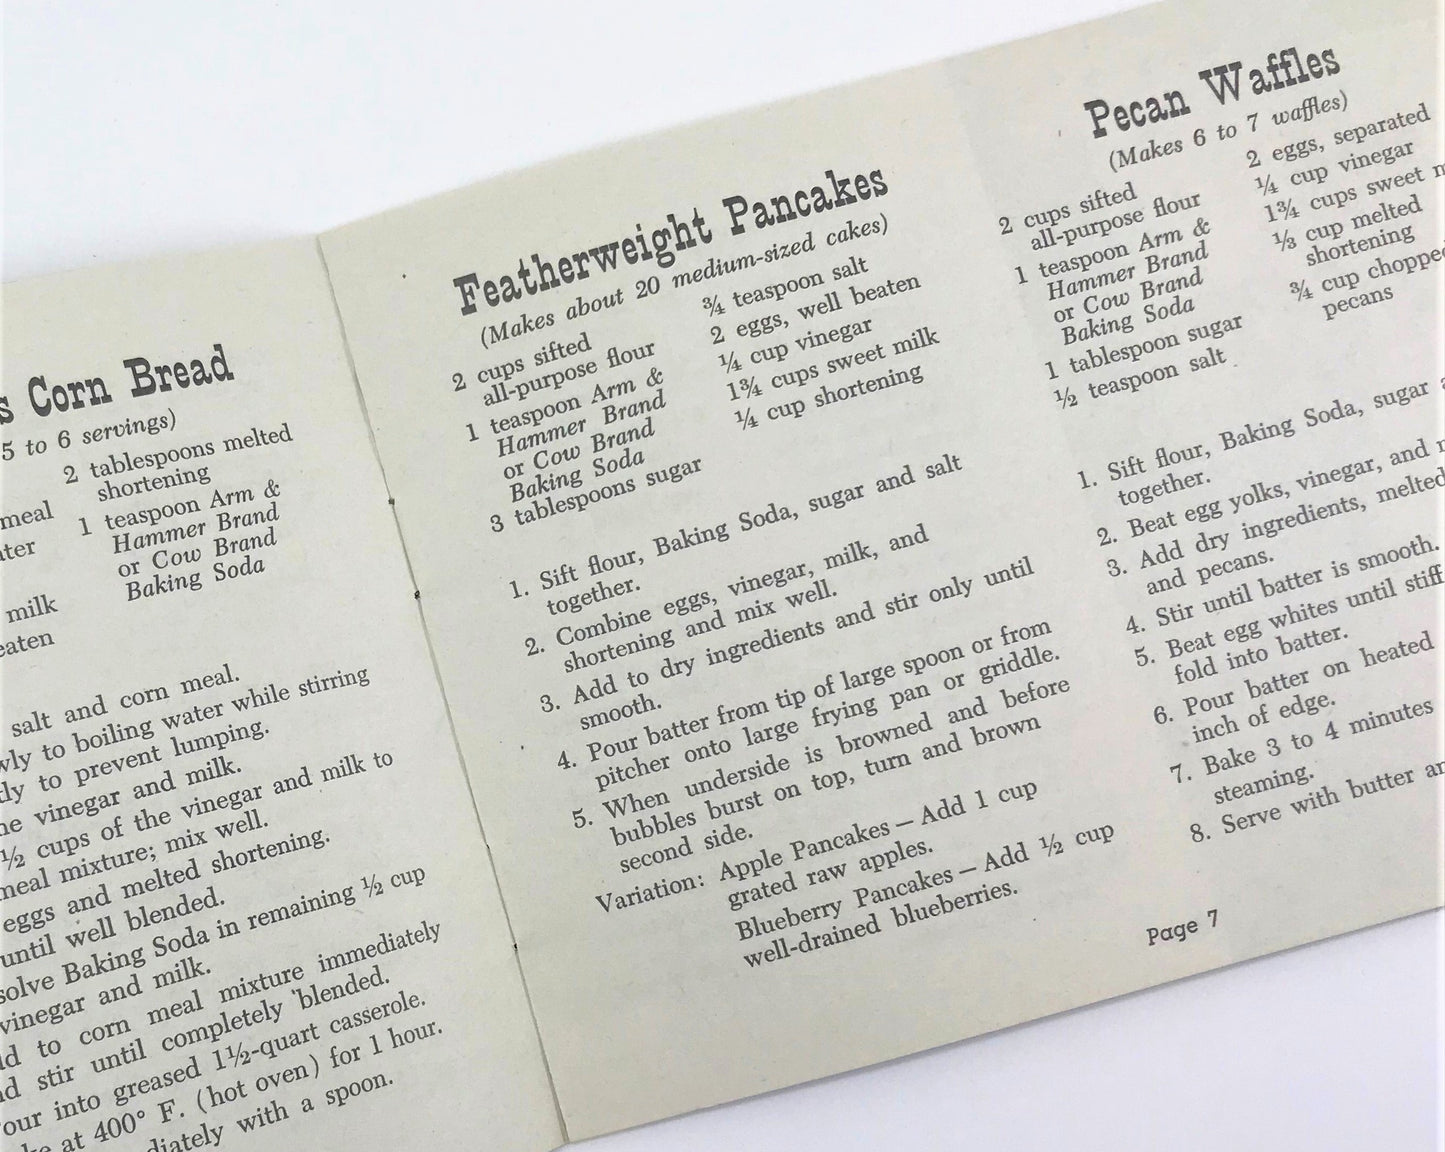 Corn Bread
5 to 6 servings)
meal
milk
2 tablespoons melted
shortening
1 teaspoon Arm &
Hammer Brand
or Cow Brand
Baking Soda
salt and corn meal.
to boiling water while stirring
to prevent lumping.
vinegar and milk.
½ cups of the vinegar and milk to
meal mixture; mix well.
eggs and melted shortening.
until well blended.
Baking Soda in remaining ½ cup
vinegar and milk.
to corn meal mixture immediately
stir until completely blended.
into greased 1½-quart casserole.
at 400° F. (hot oven) for 1 hour.
with a spoon.
Featherweight Pancakes
(Makes about 20 medium-sized cakes)
2 cups sifted
all-purpose flour
1 teaspoon Arm &
Hammer Brand
or Cow Brand
Baking Soda
3 tablespoons sugar
¾ teaspoon salt
2 eggs, well beaten
¼ cup vinegar
1¾ cups sweet milk
¼ cup shortening
1. Sift flour, Baking Soda, sugar and salt
together.
2. Combine eggs, vinegar, milk, and
shortening and mix well.
3. Add to dry ingredients and stir only until
smooth.
4. Pour batter from tip of large spoon or from
pitcher onto large frying pan or griddle.
5. When underside is browned and before
bubbles burst on top, turn and brown
second side.
Variation: Apple Pancakes — Add 1 cup
grated raw apples.
Blueberry Pancakes — Add ½ cup
well-drained blueberries.
Pecan Waffles
(Makes 6 to 7 waffles)
2 cups sifted
all-purpose flour
1 teaspoon Arm &
Hammer Brand
or Cow Brand
Baking Soda
1 tablespoon sugar
½ teaspoon salt
2 eggs, separated
¼ cup vinegar
1¾ cups sweet
⅓ cup melted
shortening
¾ cup
pecans
1. Sift flour, Baking Soda, sugar
together.
2. Beat egg yolks, vinegar, and
3. Add dry ingredients, melted
and pecans.
4. Stir until batter is smooth.
5. Beat egg whites until stiff
fold into batter.
6. Pour batter on heated
inch of edge.
7. Bake 3 to 4 minutes
steaming.
8. Serve with butter
Page 7